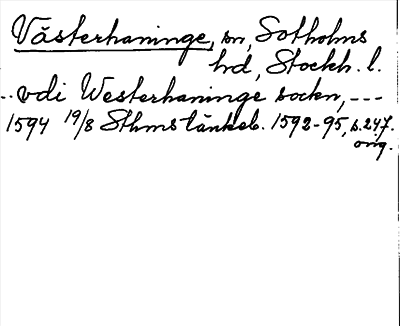 Västerhaninge, sn, Sotholms
hd, Stockh. l.
..vdi Westerhaninge sockn, ---
1594 19/8 Sthms tänkeb. 1592-95, s. 247.
orig.